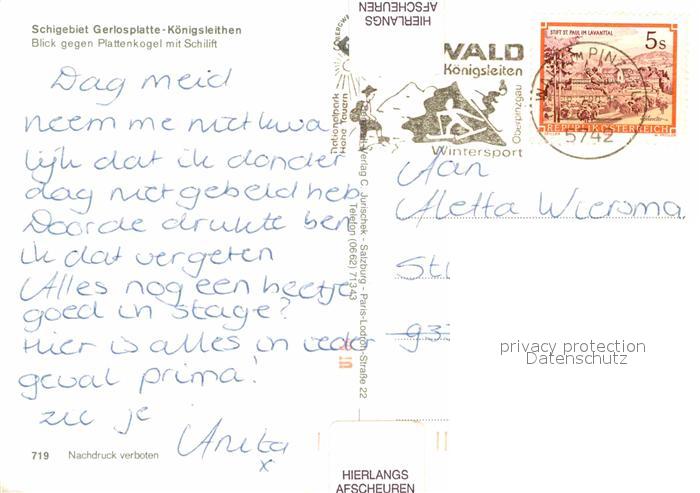 Schigebiet Gerlosplatte-Königsleithen
Blick gegen Plattenkogel mit Schilift
Dag meid
neem me niet kwa
lijk dat ik donder
dag niet gebeld heb
Door de drukte ben
ik dat vergeten
Alles nog een beetje
goed in stage?
Hier is alles in ieder
geval prima!
zie je
Anita
x
719 Nachdruck verboten
Verlag C. Jurischek - Salzburg - Paris-Lodron-Straße 22
Telefon (0662) 71343
HIERLANGS
AFSCHEUREN
Nationalpark
Hohe Tauern
WALD
Königsleiten
Oberpinzgau
Wintersport
STIFT ST. PAUL IM LAVANTTAL
5s
REPUBLIK ÖSTERREICH
WALD IM PINZGAU
5742
Aan
Aletta Wiersma
St
933
privacy protection
Datenschutz
HIERLANGS
AFSCHEUREN